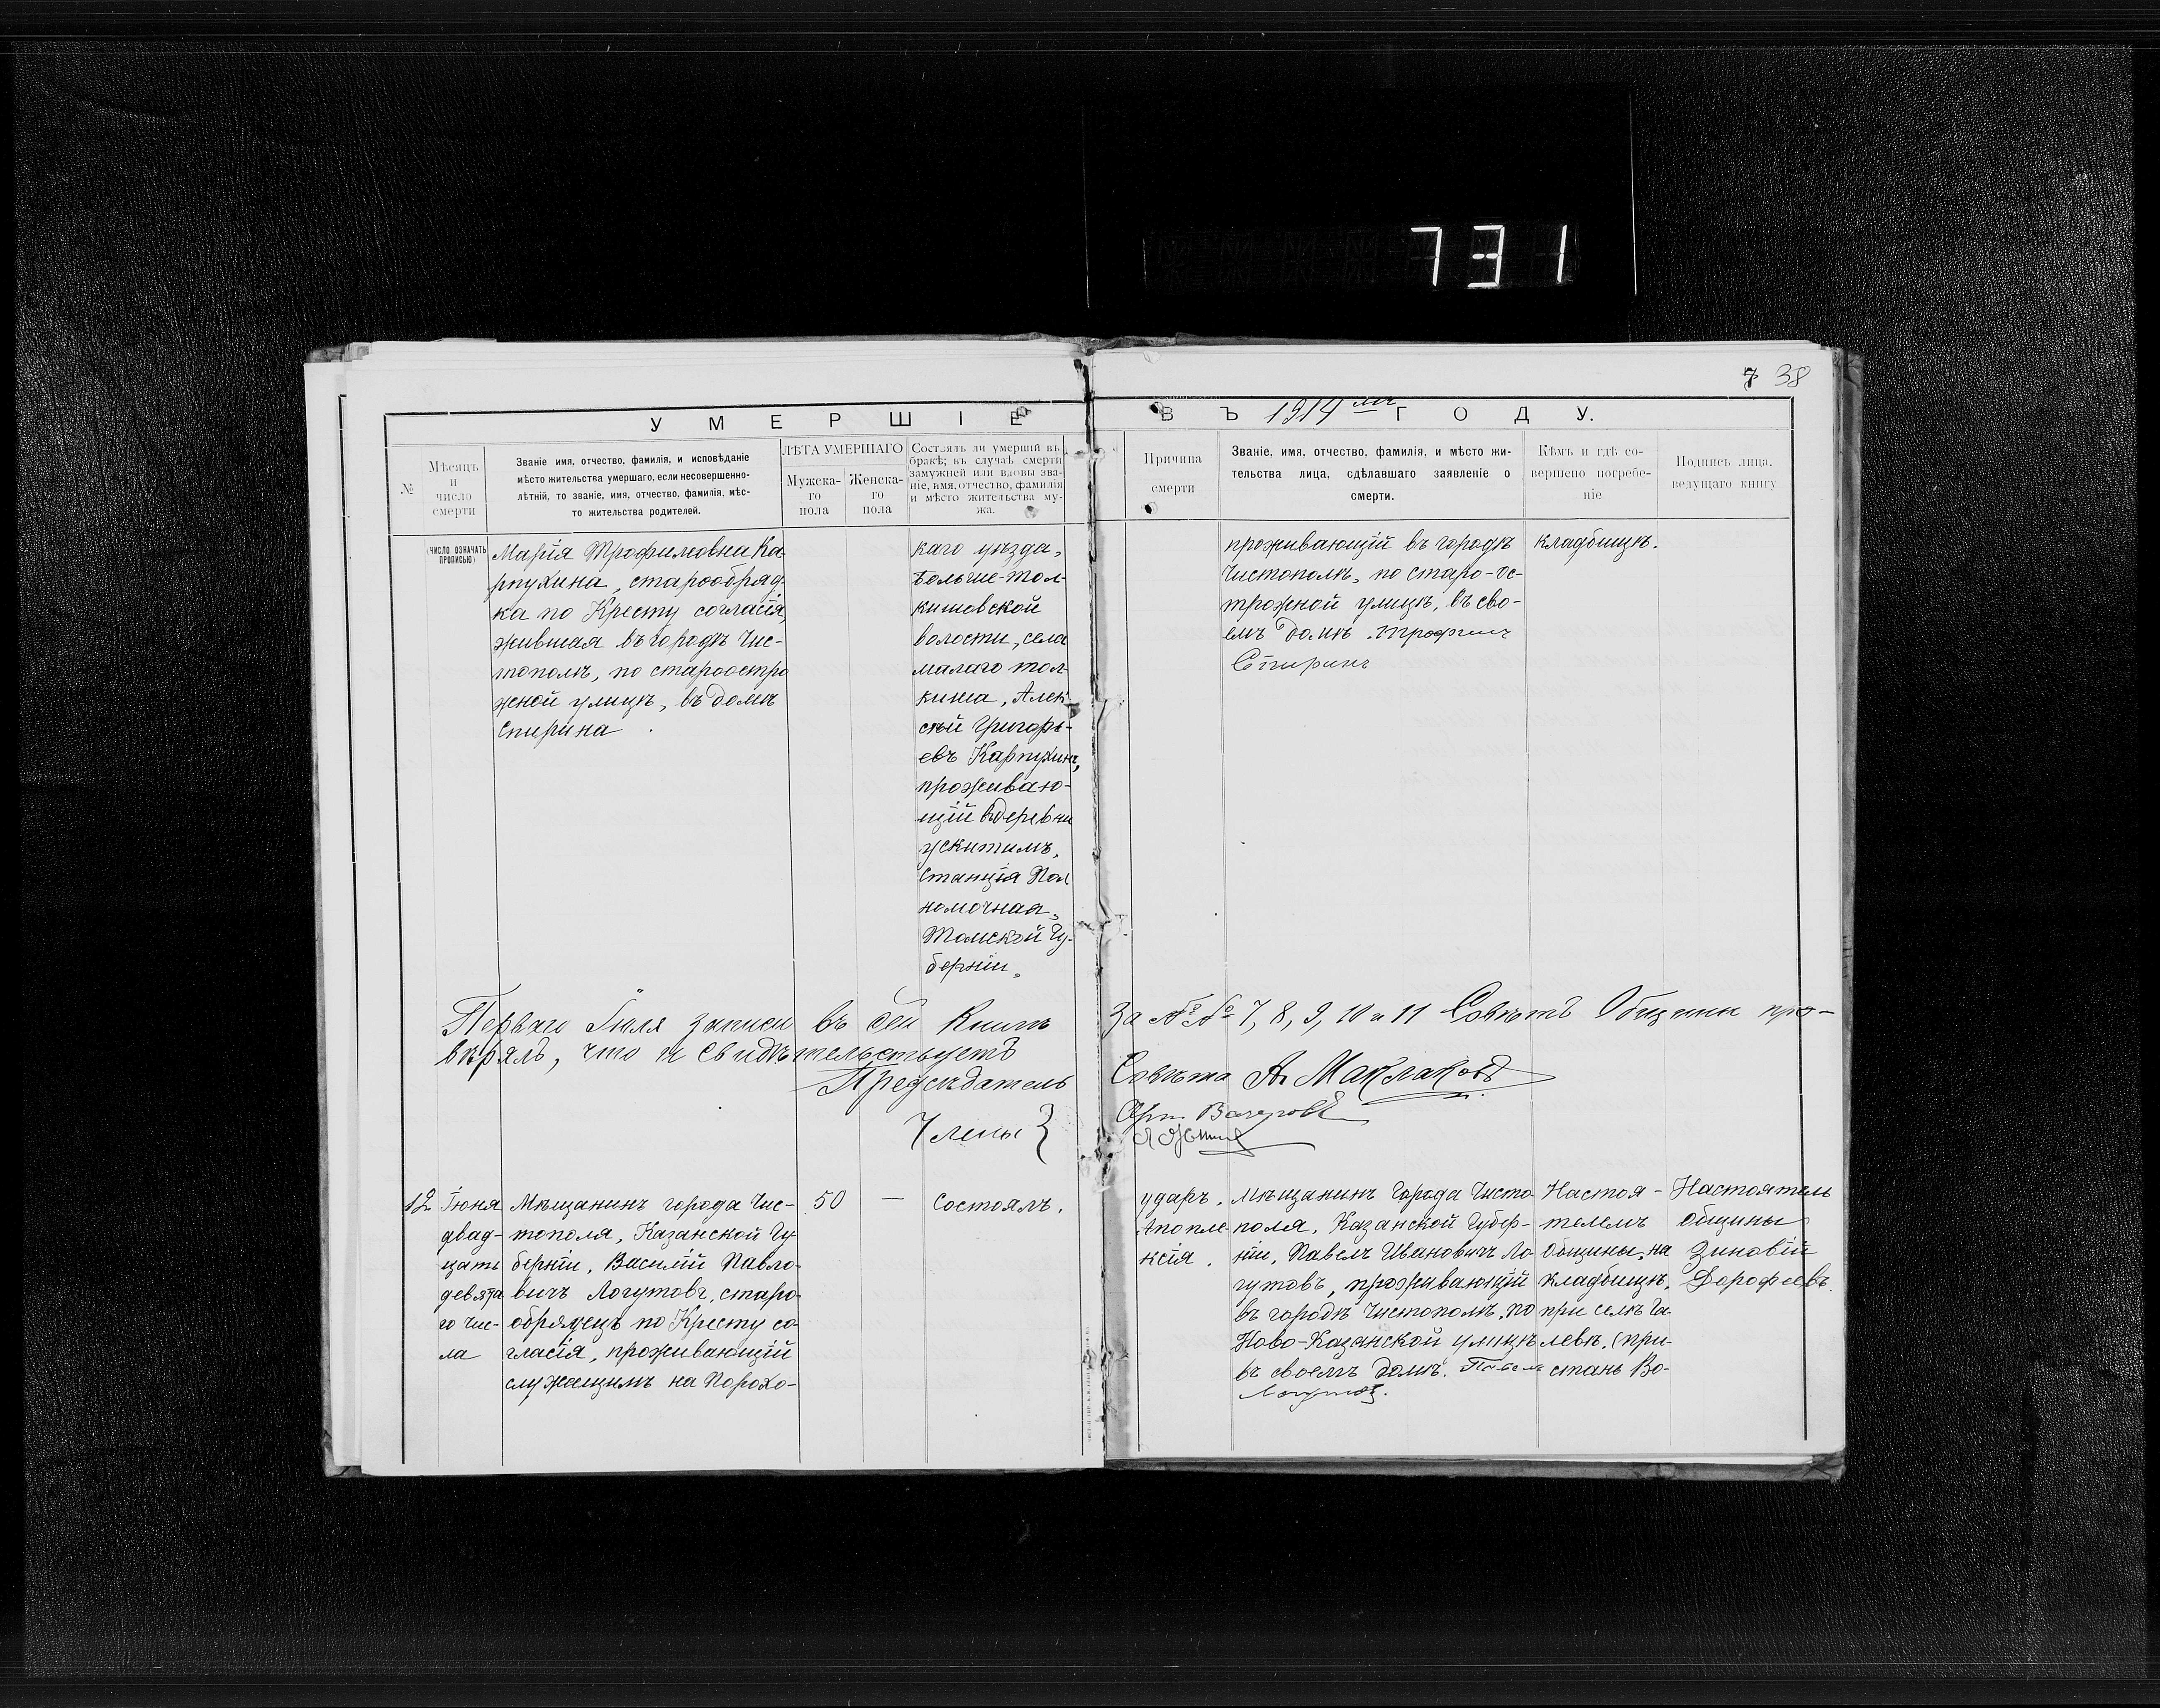 731
7 38
УМЕРШІЕ
ВЪ 1914 мъ ГОДУ.
№
Мѣсяцъ
и
число
смерти
Званіе имя, отчество, фамилія, и исповѣданіе
мѣсто жительства умершаго, если несовершенно-
лѣтній, то званіе, имя, отчество, фамилія, мѣс-
то жительства родителей.
ЛѢТА УМЕРШАГО
Мужска-
го
пола
Женска-
го
пола
Состоятъ ли умершій въ
бракѣ; въ случаѣ смерти
замужней или вдовы зва-
ніе, имя, отчество, фамилія
и мѣсто жительства му-
жа.
Причина
смерти
Званіе, имя, отчество, фамилія, и мѣсто жи-
тельства лица, сдѣлавшаго заявленіе о
смерти.
Кѣмъ и гдѣ со-
вершено погребе-
ніе
Подпись лица,
ведущаго книгу
(ЧИСЛО ОЗНАЧАТЬ
ПРОПИСЬЮ)
Марія Трофимовна Ка-
рпухина, старообряд-
ка по Кресту согласія,
жившая въ городѣ Чис-
тополѣ, по староостро
жной улицѣ, въ домѣ
Спирина.
каго уѣзда,
Больше-Тол-
кишовской
волости, села
малаго тол-
киша, Алек-
сѣй Григорь-
евъ Карпухинъ,
проживаю-
щій въ деревни
ускитимъ,
Станція Пол
номочная,
Томской Гу-
берніи.
проживающій въ городѣ
Чистополѣ, по старо-ос-
трожной улицѣ, въ сво-
емъ домѣ. Трофимъ
Спиринъ
кладбищѣ.
Перваго Іюля записи въ сей Книгѣ За №№ 7, 8, 9, 10 и 11 Совѣтъ Общины про-
вѣрялъ, что и свидѣтельствуетъ
Предсѣдатель Совѣта Ан Маклаковъ
Члены }
12
Іюня
двад-
цать
девята
го чис-
ла
Мѣщанинъ города Чис-
тополя, Казанской Гу-
берніи, Василій Павло-
вичъ Логутовъ, старо-
обрядецъ по Кресту со-
гласія, проживающій
служащимъ на Порохо-
50
—
Состоялъ.
ударъ.
Апопле-
ксія.
Мѣщанинъ Города Чисто
поля, Казанской Губер-
ніи, Павелъ Ивановичъ Ло
гутовъ, проживающій
въ городѣ Чистополѣ, по
Ново-Казанской улицѣ
въ своемъ домѣ. Павелъ
Логутовъ.
Настоя-
телемъ
Общины, на
кладбищѣ,
при селѣ Га-
левѣ. (при-
стань Во-
Настоятель
Общины
Зиновій
Дорофеевъ.